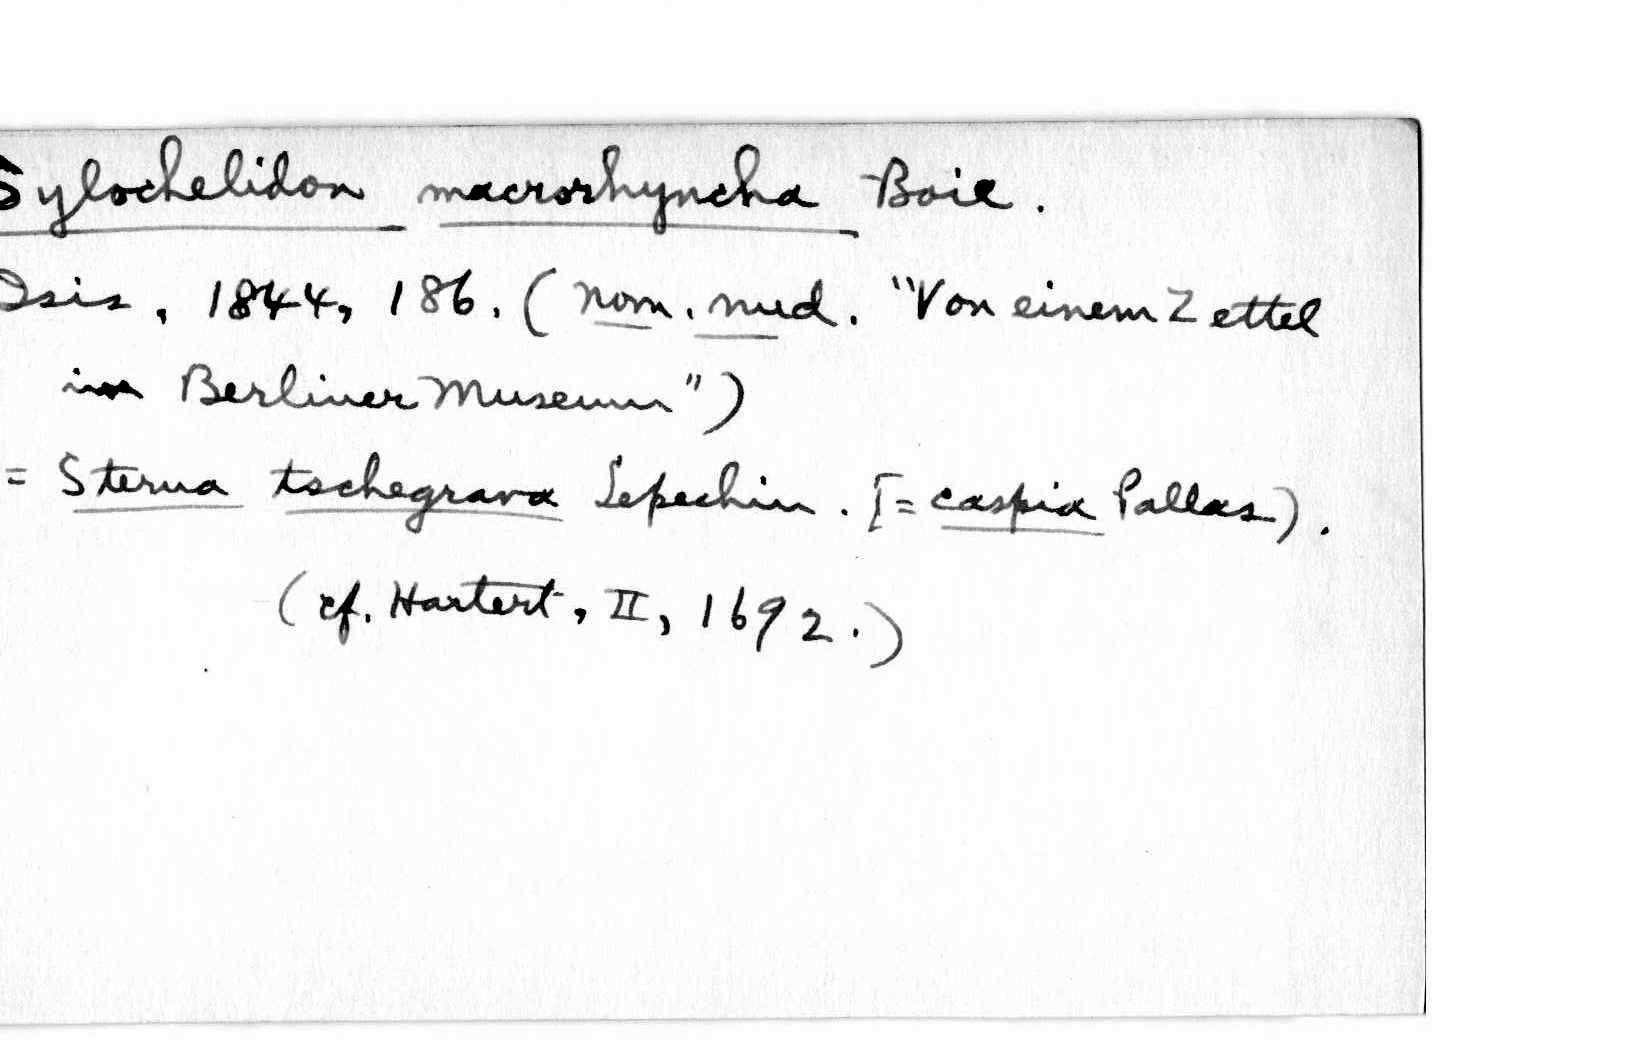 Sylochelidon macrorhyncha Boie.
Isis, 1844, 186. (nom. nud. "Von einem Zettel
im Berliner Museum")
= Sterna tschegrava Lepechin. [= caspia Pallas).
(cf. Hartert, II, 1692.)